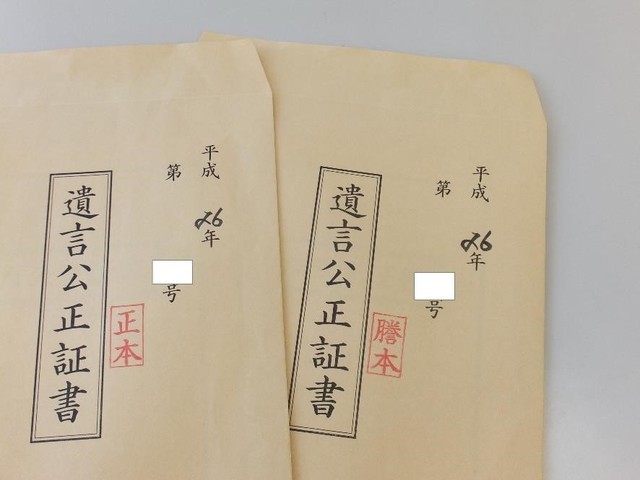 平成26年
第 号
遺言公正証書
正本
平成26年
第 号
遺言公正証書
謄本